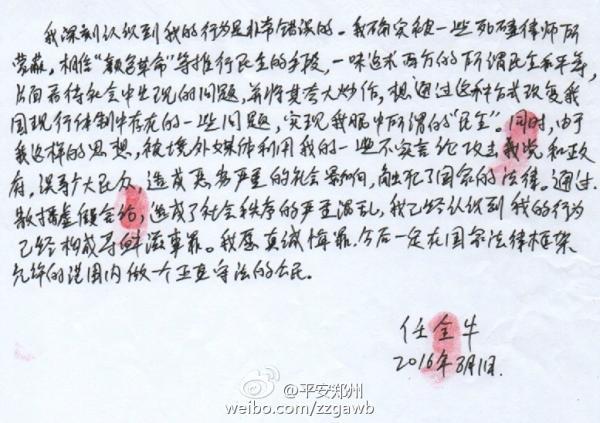 我深刻认识到我的行为是非常错误的。我确实被一些死磕律师所
蒙蔽，相信“颜色革命”等推行民主的手段，一味追求西方的所谓民主和平等，
片面看待社会中出现的问题，并将其夸大炒作，想通过这种方式改变我
国现行体制中存在的一些问题，实现我眼中所谓的“民主”。同时，由于
我这样的思想，被境外媒体利用我的一些不实言论攻击我党和政
府，误导广大民众，造成恶劣严重的社会影响，触犯了国家的法律。通过
散播虚假言论，造成了社会秩序的严重混乱，我已经认识到我的行为
已经构成寻衅滋事罪。我愿真诚悔罪，今后一定在国家法律框架
允许的范围内做个正直守法的公民。
任金牛
2016年8月1日.
@平安郑州
weibo.com/zzgawb